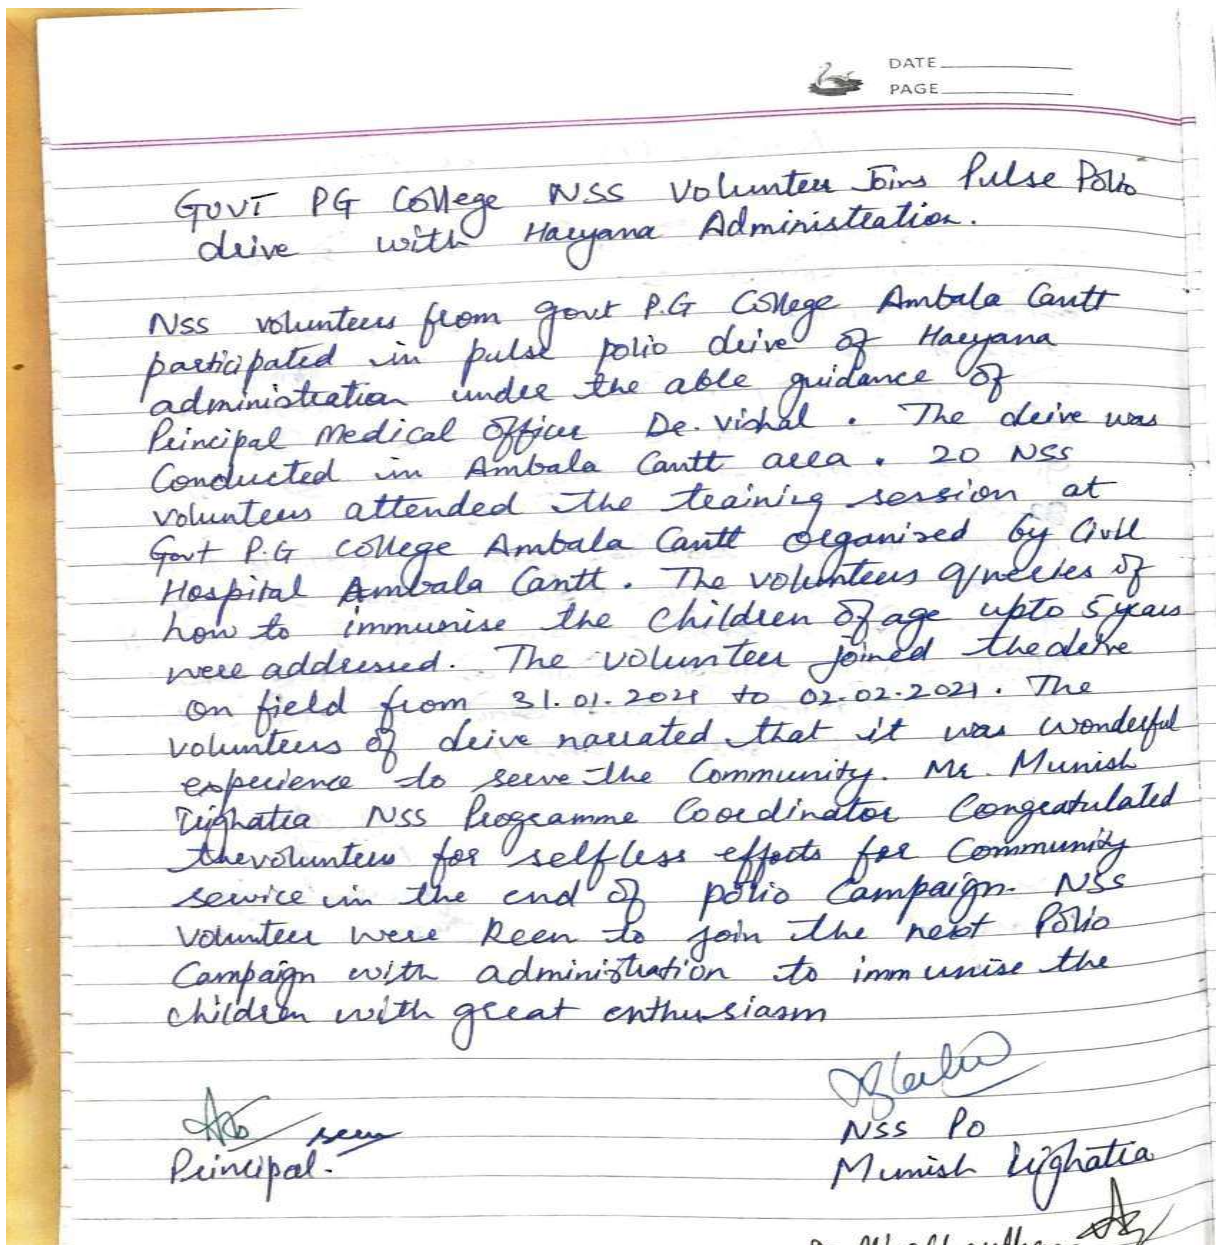 DATE
PAGE
Govt PG College NSS Volunteer Joins Pulse Polio
drive with Haryana Administration.
NSS volunteers from govt P.G College Ambala Cantt
participated in pulse polio drive of Haryana
administration under the able guidance of
Principal Medical Officer Dr. Vishal. The drive was
Conducted in Ambala Cantt area. 20 NSS
volunteers attended the training session at
Govt P.G College Ambala Cantt organised by Civil
Hospital Ambala Cantt. The volunteers of
how to immunise the children of age upto 5 years
were addressed. The volunteer joined the drive
on field from 31.01.2021 to 02.02.2021. The
volunteers of drive narrated that it was wonderful
experience to serve the Community. Mr. Munish
NSS Programme Coordinator Congratulated
the volunteers for selfless efforts for Community
service in the end of polio Campaign. NSS
Volunteer were keen to join the next Polio
Campaign with administration to immunise the
children with great enthusiasm
NSS PO
Principal.
Munish